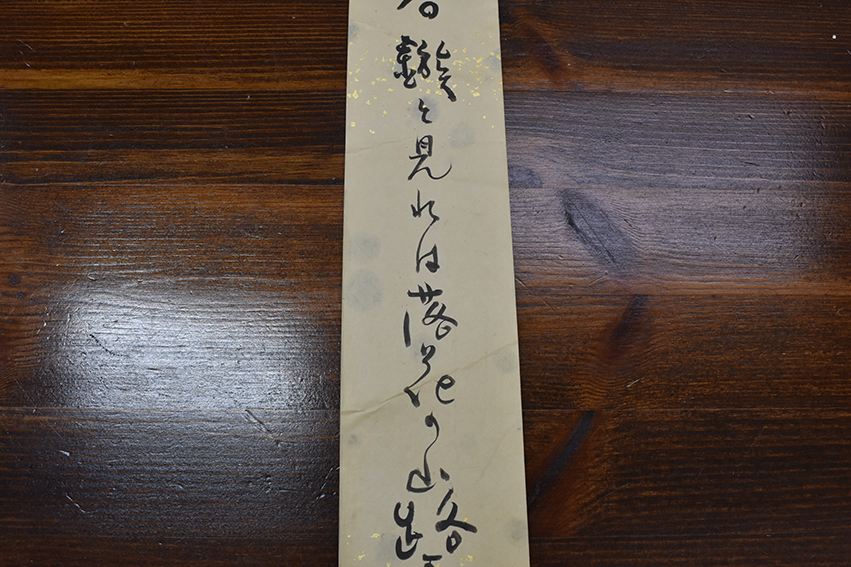 と見れは落花の山路